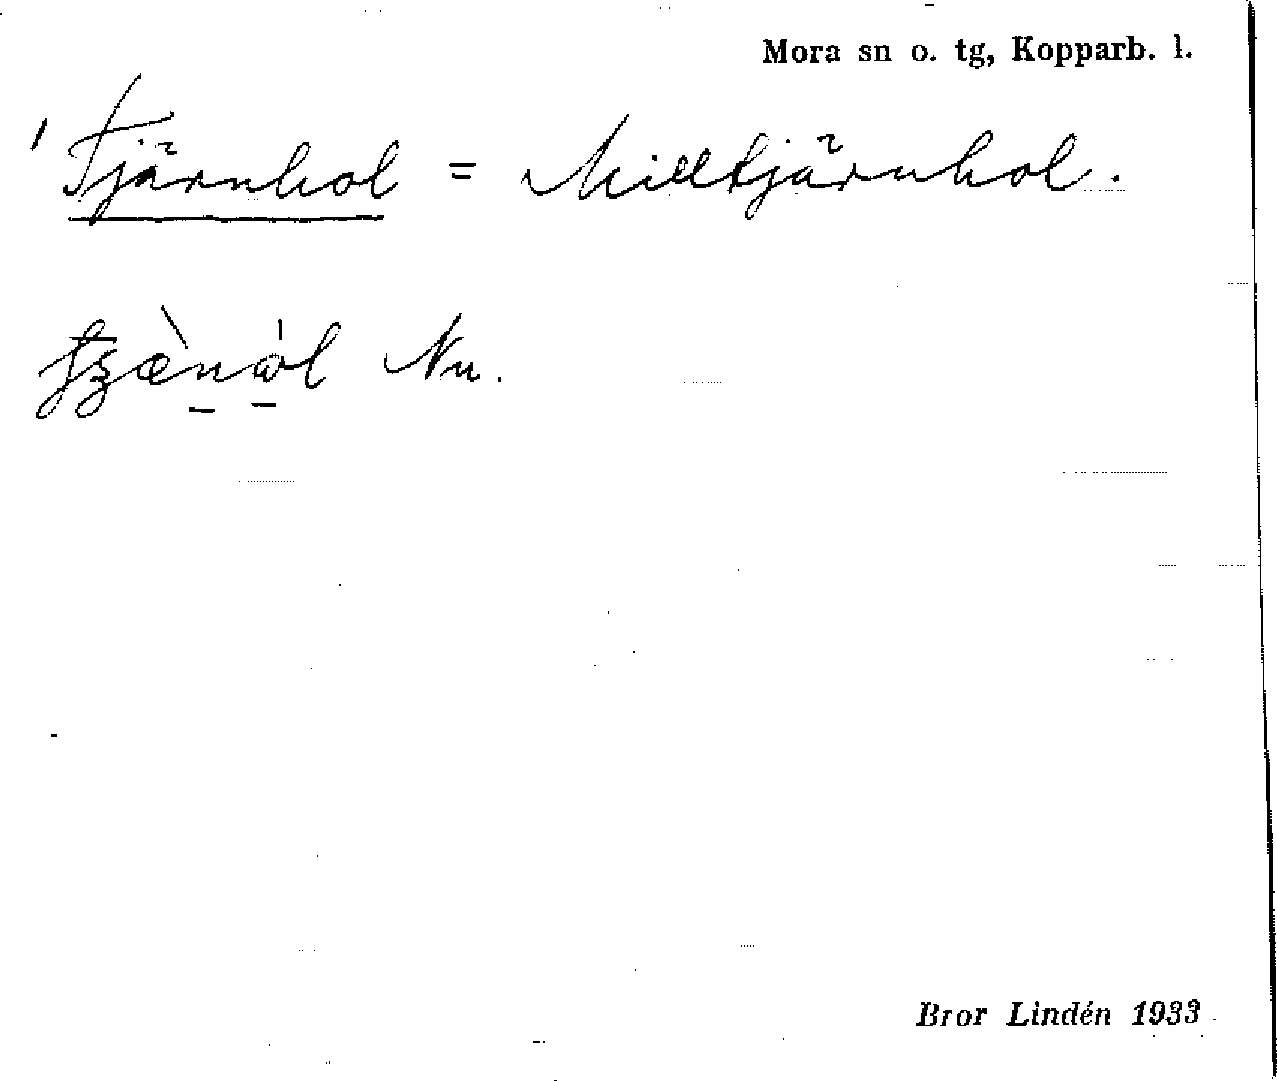 Mora sn o. tg, Kopparb. l.
' Tjärnhol = Milltjärnhol.
Nu.
Bror Lindén 1933